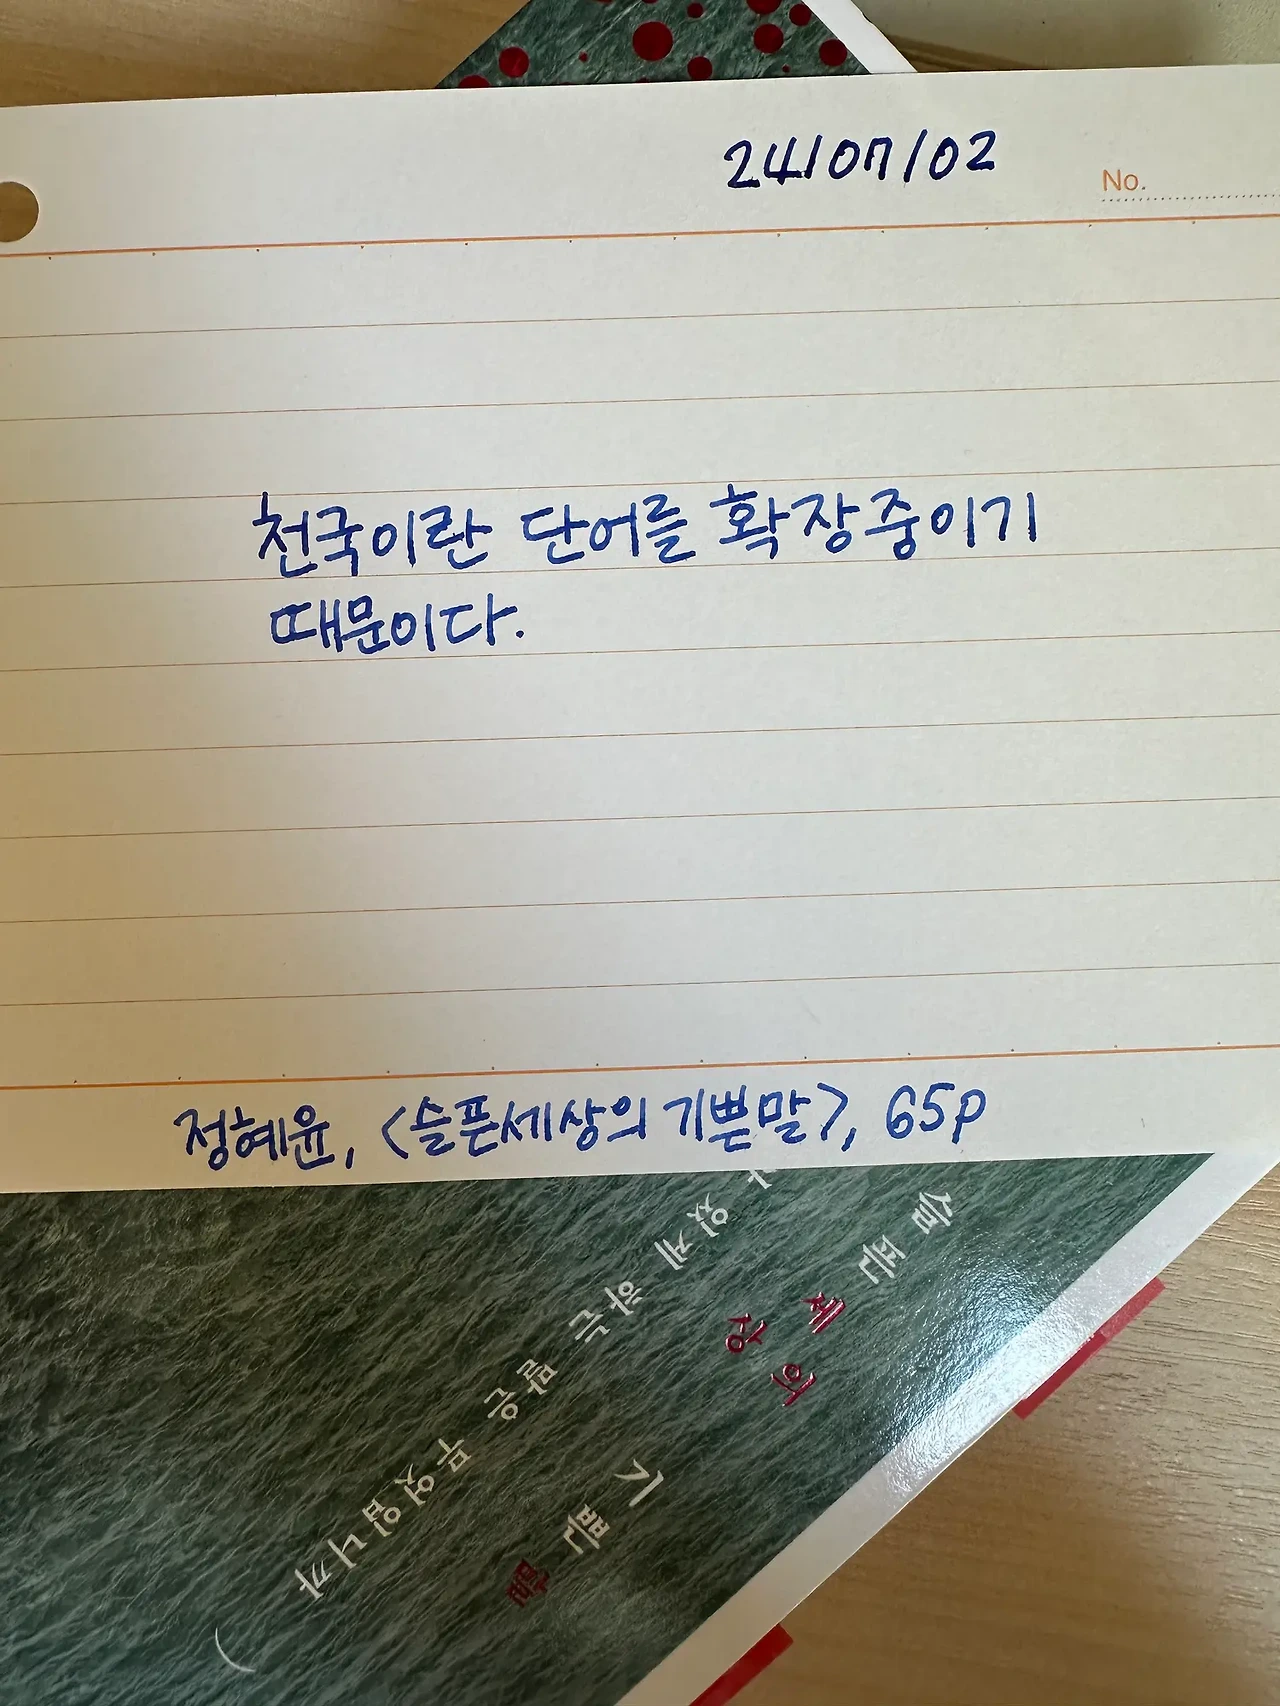 24/07/02
No.
천국이란 단어를 확장중이기
때문이다.
정혜윤, <슬픈세상의 기쁜말>, 65p
슬픈
세상의
기쁜
말
있게 하는 말은 무엇입니까